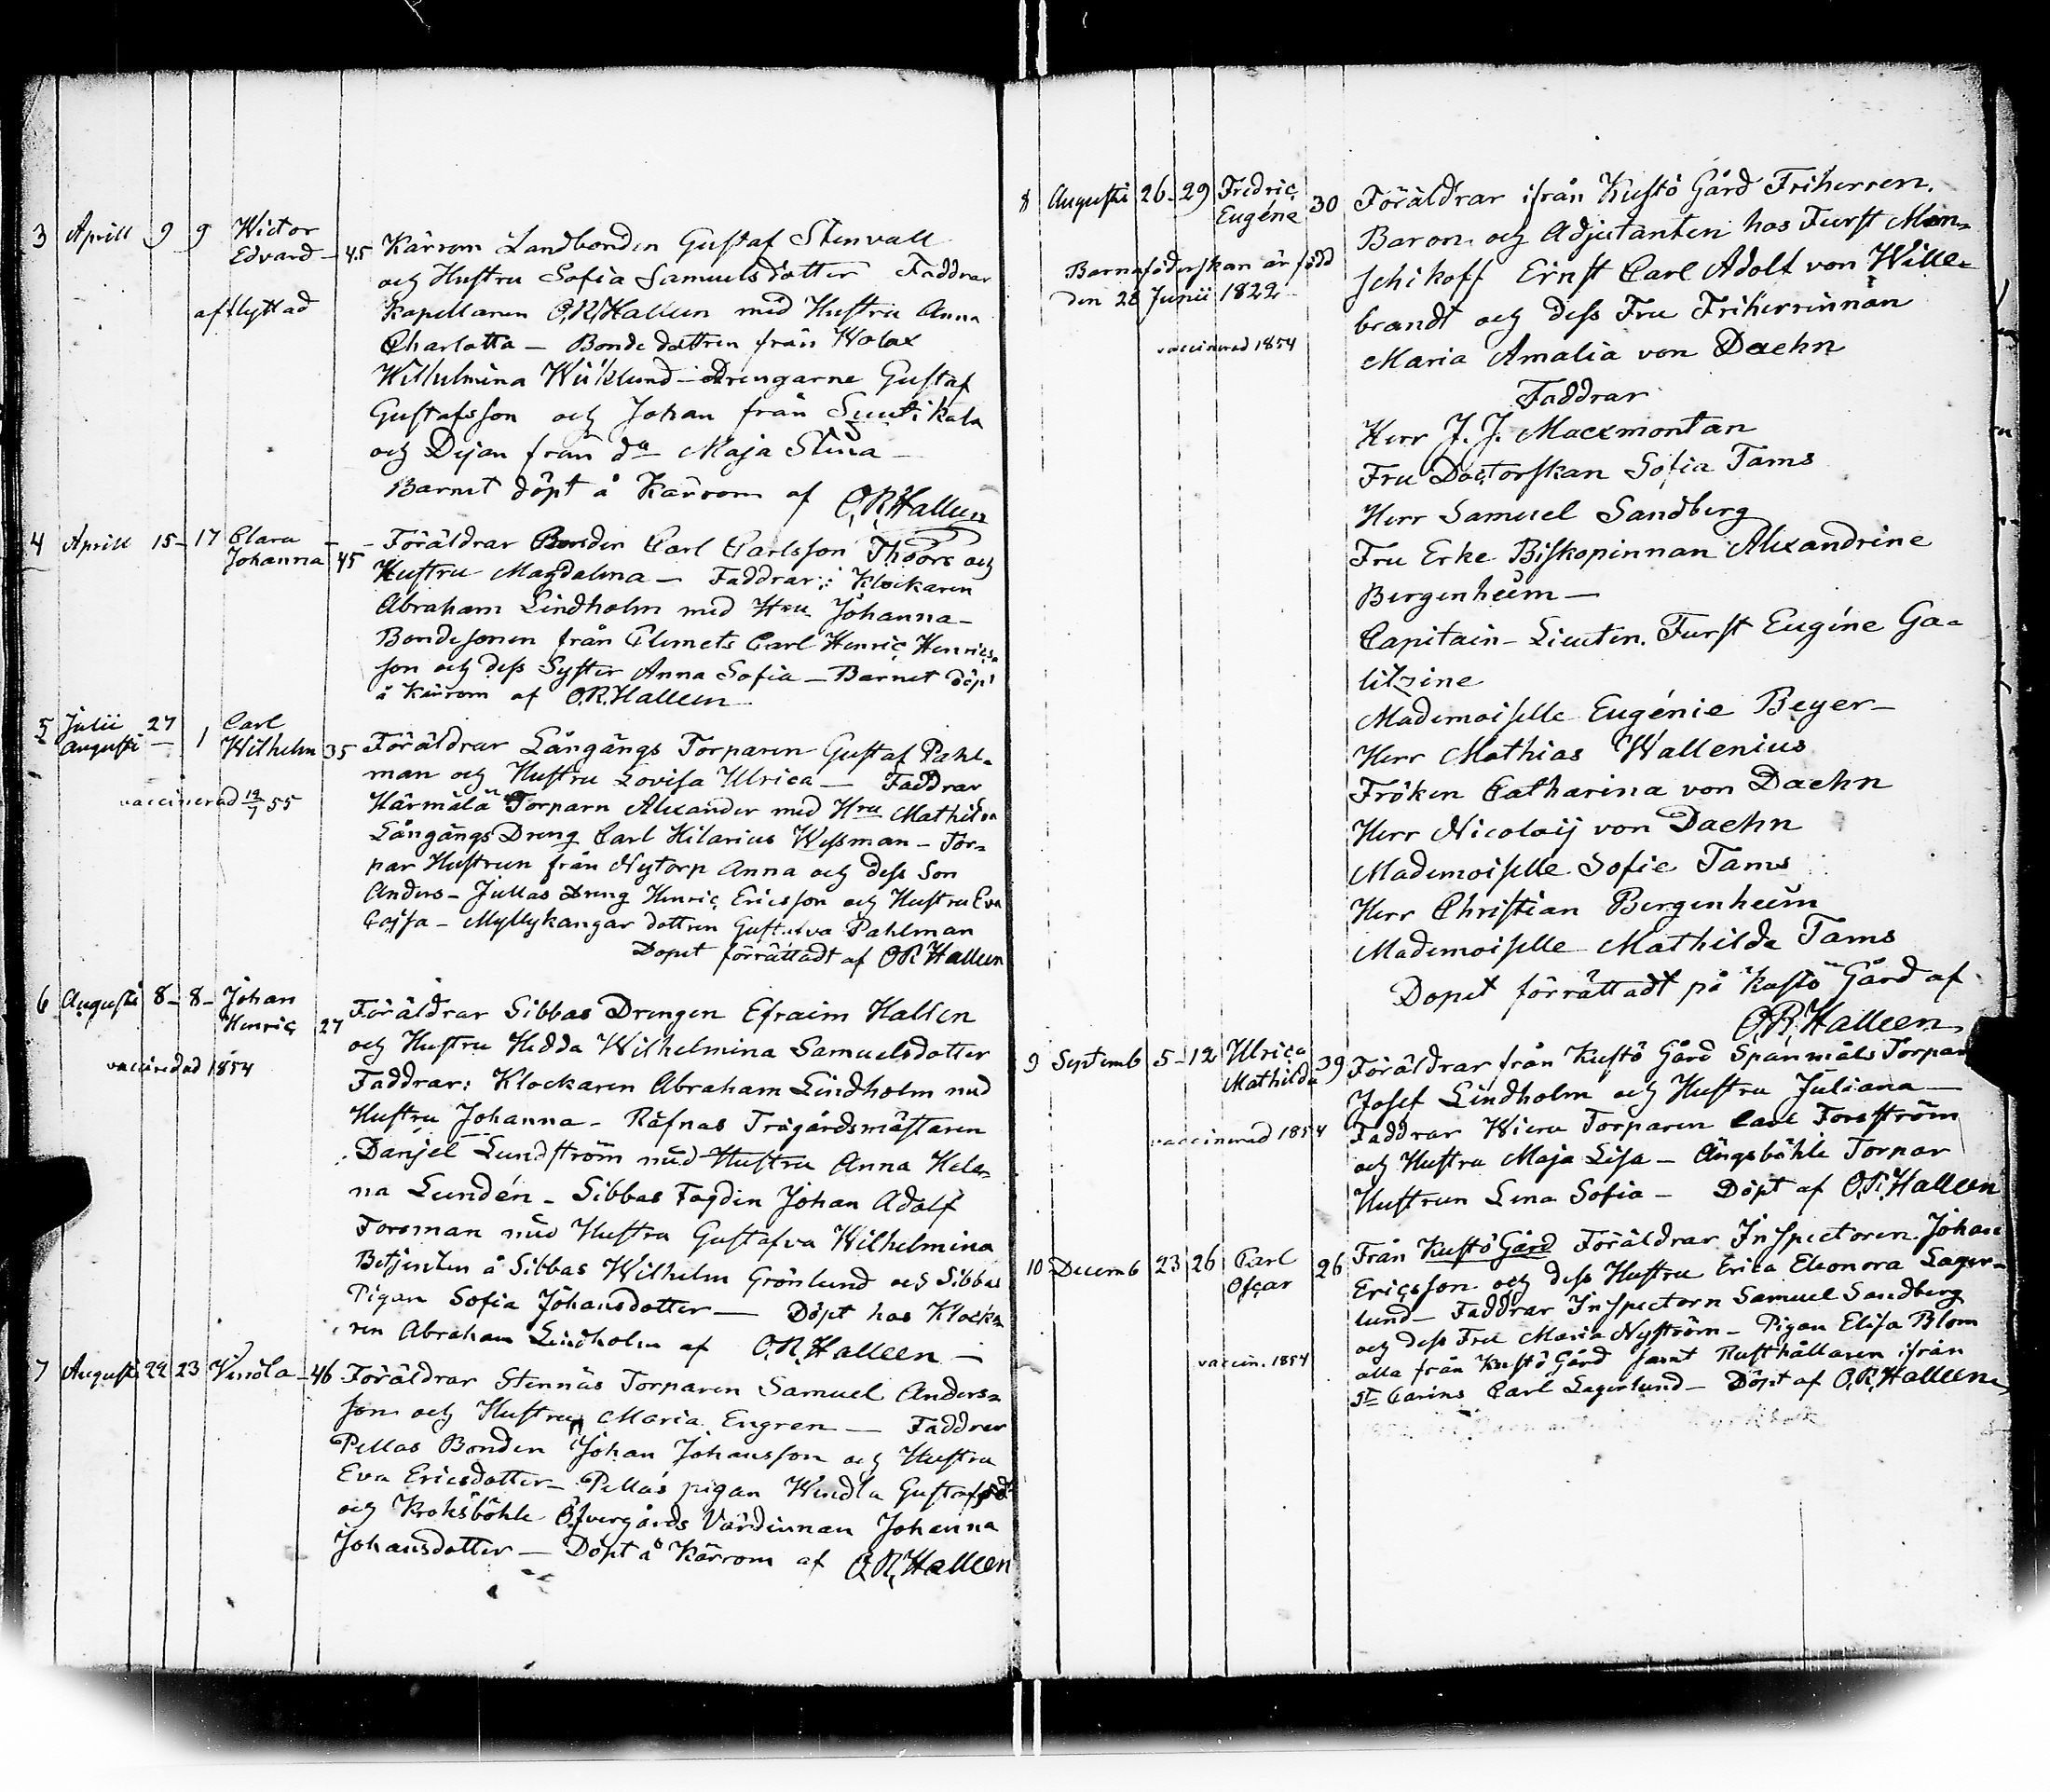 3 Aprill 9 9 Wictor
Edvard – 45 Kärrom Landbonden Gustaf Stenvall
och Hustru Sofia Samuelsdotter Faddrar
afflyttad Kapellanen O.R.Halleen med Hustru Anna
Charlotta – Bonde dottren från Wolax
Wilhelmina Wiklund – Drengarne Gustaf
Gustafsson och Johan från Suutikala
och Dejan från do Maja Stina –
Barnet döpt å Kärrom af O.R.Halleen
4 Aprill 15 – 17 Clara –
Johanna 45 – Föräldrar Bonden Carl Carlsson Thoors och
Hustru Magdalena – Faddrar: Klockaren
Abraham Lindholm med Hru Johanna –
Bondesonen från Clemets Carl Henric Henrics-
son och dess Syster Anna Sofia – Barnet döpt
å Kärrom af O.R.Halleen
5 Julii 27 Carl
Augusti – 1 Wilhelm 35 Föräldrar Långängs Torparen Gustaf Pahl-
man och Hustru Lovisa Ulrica – Faddrar
vaccinerad 12/7 55 Kärmälä Torparn Alexander med Hru Mathilda
Långängs Dreng Carl Hilarius Wessman – Tor-
par Hustrun från Nytorp Anna och dess Son
Anders – Jullas Dreng Henric Ericsson och Hustru Eva
Cajsa – Myllykangar dottren Gustafva Pahlman
Dopet förrättadt af O.R.Halleen
6 Augusti 8 – 8 – Johan
Henric 27 Föräldrar Sibbas Drengen Efraim Hallen
och Hustru Hedda Wilhelmina Samuelsdotter
vaccinerad 1854 Faddrar: Klockaren Abraham Lindholm med
Hustru Johanna – Räfnas Trägårdsmästaren
Danjel Lundström med Hustru Anna Hele-
na Lundén – Sibbas Fogden Johan Adolf
Forsman med Hustru Gustafva Wilhelmina
Betjenten å Sibbas Wilhelm Grönlund och Sibbas
Pigan Sofia Johansdotter – Döpt hos Klocka-
ren Abraham Lindholm af O.R.Halleen –
7 Augusti 22 23 Vendla – 46 Föräldrar Stennäs Torparen Samuel Anders-
son och Hustru Maria Engren – Faddrar
Pellas Bonden Johan Johansson och Hustru
Eva Ericsdotter – Pellas pigan Wendla Gustafsd
och Kroksböhle Öfvergårds Värdinnan Johanna
Johansdotter – Döpt å Kärrom af O.R.Halleen
8 Augusti 26 – 29 Fredric
Eugéne 30 Föräldrar ifrån Kustö Gård Friherren,
Baron och Adjutanten hos Furst Men-
Barnaföderskan är född
den 28 Junii 1822
schikoff Ernst Carl Adolf von Wille-
brandt och dess Fru Friherrinnan
vaccinerad 1854 Maria Amalia von Daehn
Faddrar
Herr J. J. Macxmontan
Fru Doctorskan Sofia Tams
Herr Samuel Sandberg
Fru Erke Biskopinnan Alexandrine
Bergenheim –
Capitain – Lieuten. Furst Eugéne Ga-
litzine
Mademoiselle Eugénie Beyer –
Herr Mathias Wallenius
Fröken Catharina von Daehn
Herr Nicolaij von Daehn
Mademoiselle Sofie Tams
Herr Christian Bergenheim
Mademoiselle Mathilda Tams
Dopet förrättadt på Kustö Gård af
O.R.Halleen
9 Septemb 5 – 12 Ulrica
Mathilda 39 Föräldrar från Kustö Gård Spanmåls Torparen
Josef Lindholm och Hustru Juliana –
vaccinerad 1854 Faddrar Wiern Torparen Carl Forsström
och Hustru Maja Lisa – Ängsböhle Torpar
Hustrun Lena Sofia – Döpt af O.R.Halleen
10 Decemb 23 26 Carl
Oscar 26 Från Kustö Gård Föräldrar Inspectoren Johan
Ericsson och dess Hustru Erica Eleonora Lager-
lund – Faddrar Inspectorn Samuel Sandberg
och dess Fru Maria Nyström – Pigan Elisa Blom
vaccin. 1854 alla från Kustö Gård samt Rusthållaren ifrån
St Carins Carl Lagerlund – Döpt af O.R.Halleen